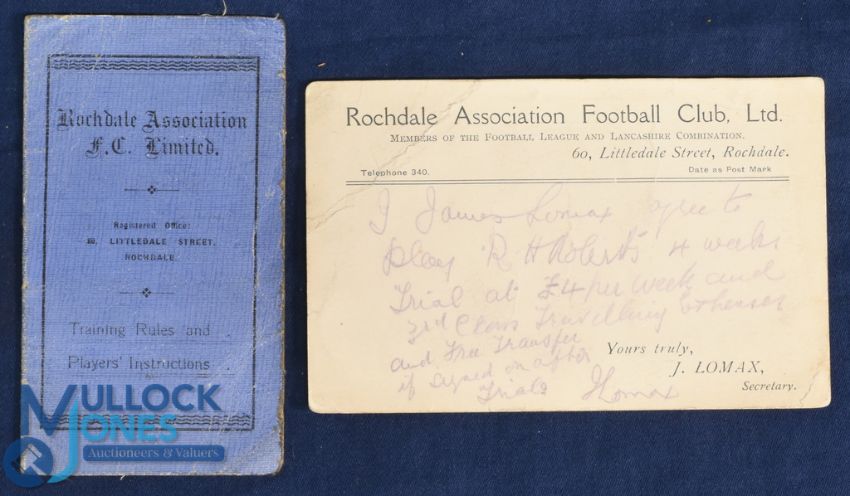 Rochdale Association
F.C. Limited.
Registered Office:
60, LITTLEDALE STREET,
ROCHDALE.
Training Rules and
Players' Instructions
MULLOCK
JONES
Auctioneers & Valuers
ROCHDALE ASSOCIATION FOOTBALL CLUB, LTD.
MEMBERS OF THE FOOTBALL LEAGUE AND LANCASHIRE COMBINATION.
60, Littledale Street, Rochdale.
Telephone 340.
Date as Post Mark
I James Lomax agree to
play R H Roberts 4 weeks
Trial at £4 per week and
3rd Class Travelling Expenses
and Free Transfer
if signed on after
Trials JLomax
Yours truly,
J. LOMAX,
Secretary.